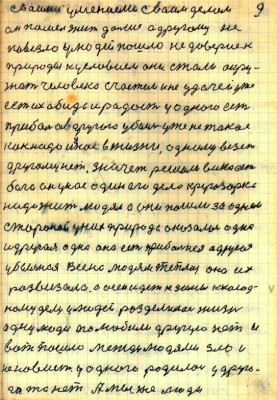 9
своими умениеми своим делом
он помележит далше а другому не
повезло у людей пошло не доверие к
природы к уеловием они стали окру-
жат человека счастем и не удачей уже
ест их обида и радост у одного ест
прибал а в другого убыл уже не такое
как надо иное в жизни, одному везет
другому нет. значет решили виноват
бога он указ один его дело кругазорка
надо жит людям а они пошли за одной
стороной у них природа оказалос одна
и другая одна она ест прибавиеся а другая
убывиися Весно людям теплом оно их
развивало, а осен идет к зимы к холод-
ному делу у людей разделилас жизн
одну люди полюбили другую нет и
вот пошло между людями зло и
ненавист. у одного родилос у друго-
га то нет А мы же люди